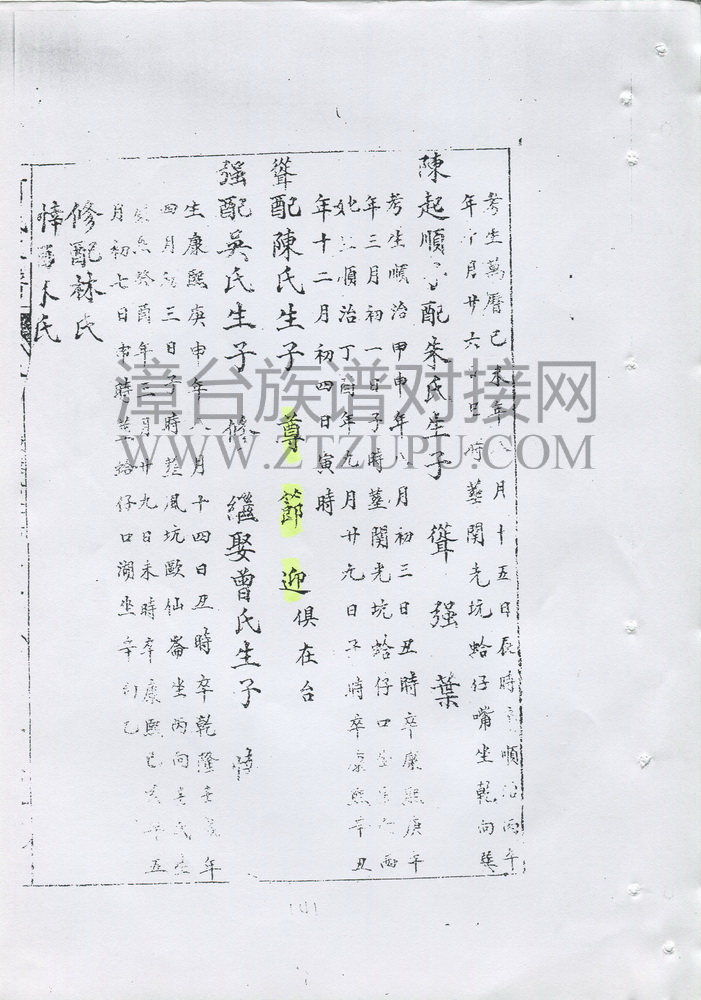 考生萬曆己未年八月十五日辰時 順治丙午
年 月廿六 時塟関光坑蛤仔嘴坐乾向巽
陳起順 配朱氏生子 聳 强 葉
考生順治甲申年八月初三日丑時卒康熙庚午
年三月初一日子時塟関光坑蛤仔口
妣 順治丁酉年九月廿六日子時卒康熙辛丑
年十二月初四日寅時
聳配陳氏生子 尊 節 迎 俱在台
强配吳氏生子 修 繼娶曾氏生子
生康熙庚申年 月十四日丑時卒乾隆 年
四月 三日子時塟風坑歐仙崙坐丙向 氏生
康熙癸酉年三月廿九日未時卒康熙 五
月初七日 時塟蛤仔口湖坐辛向乙
修配林氏
氏
漳台族谱对接网
WWW.ZTZUPU.COM
141